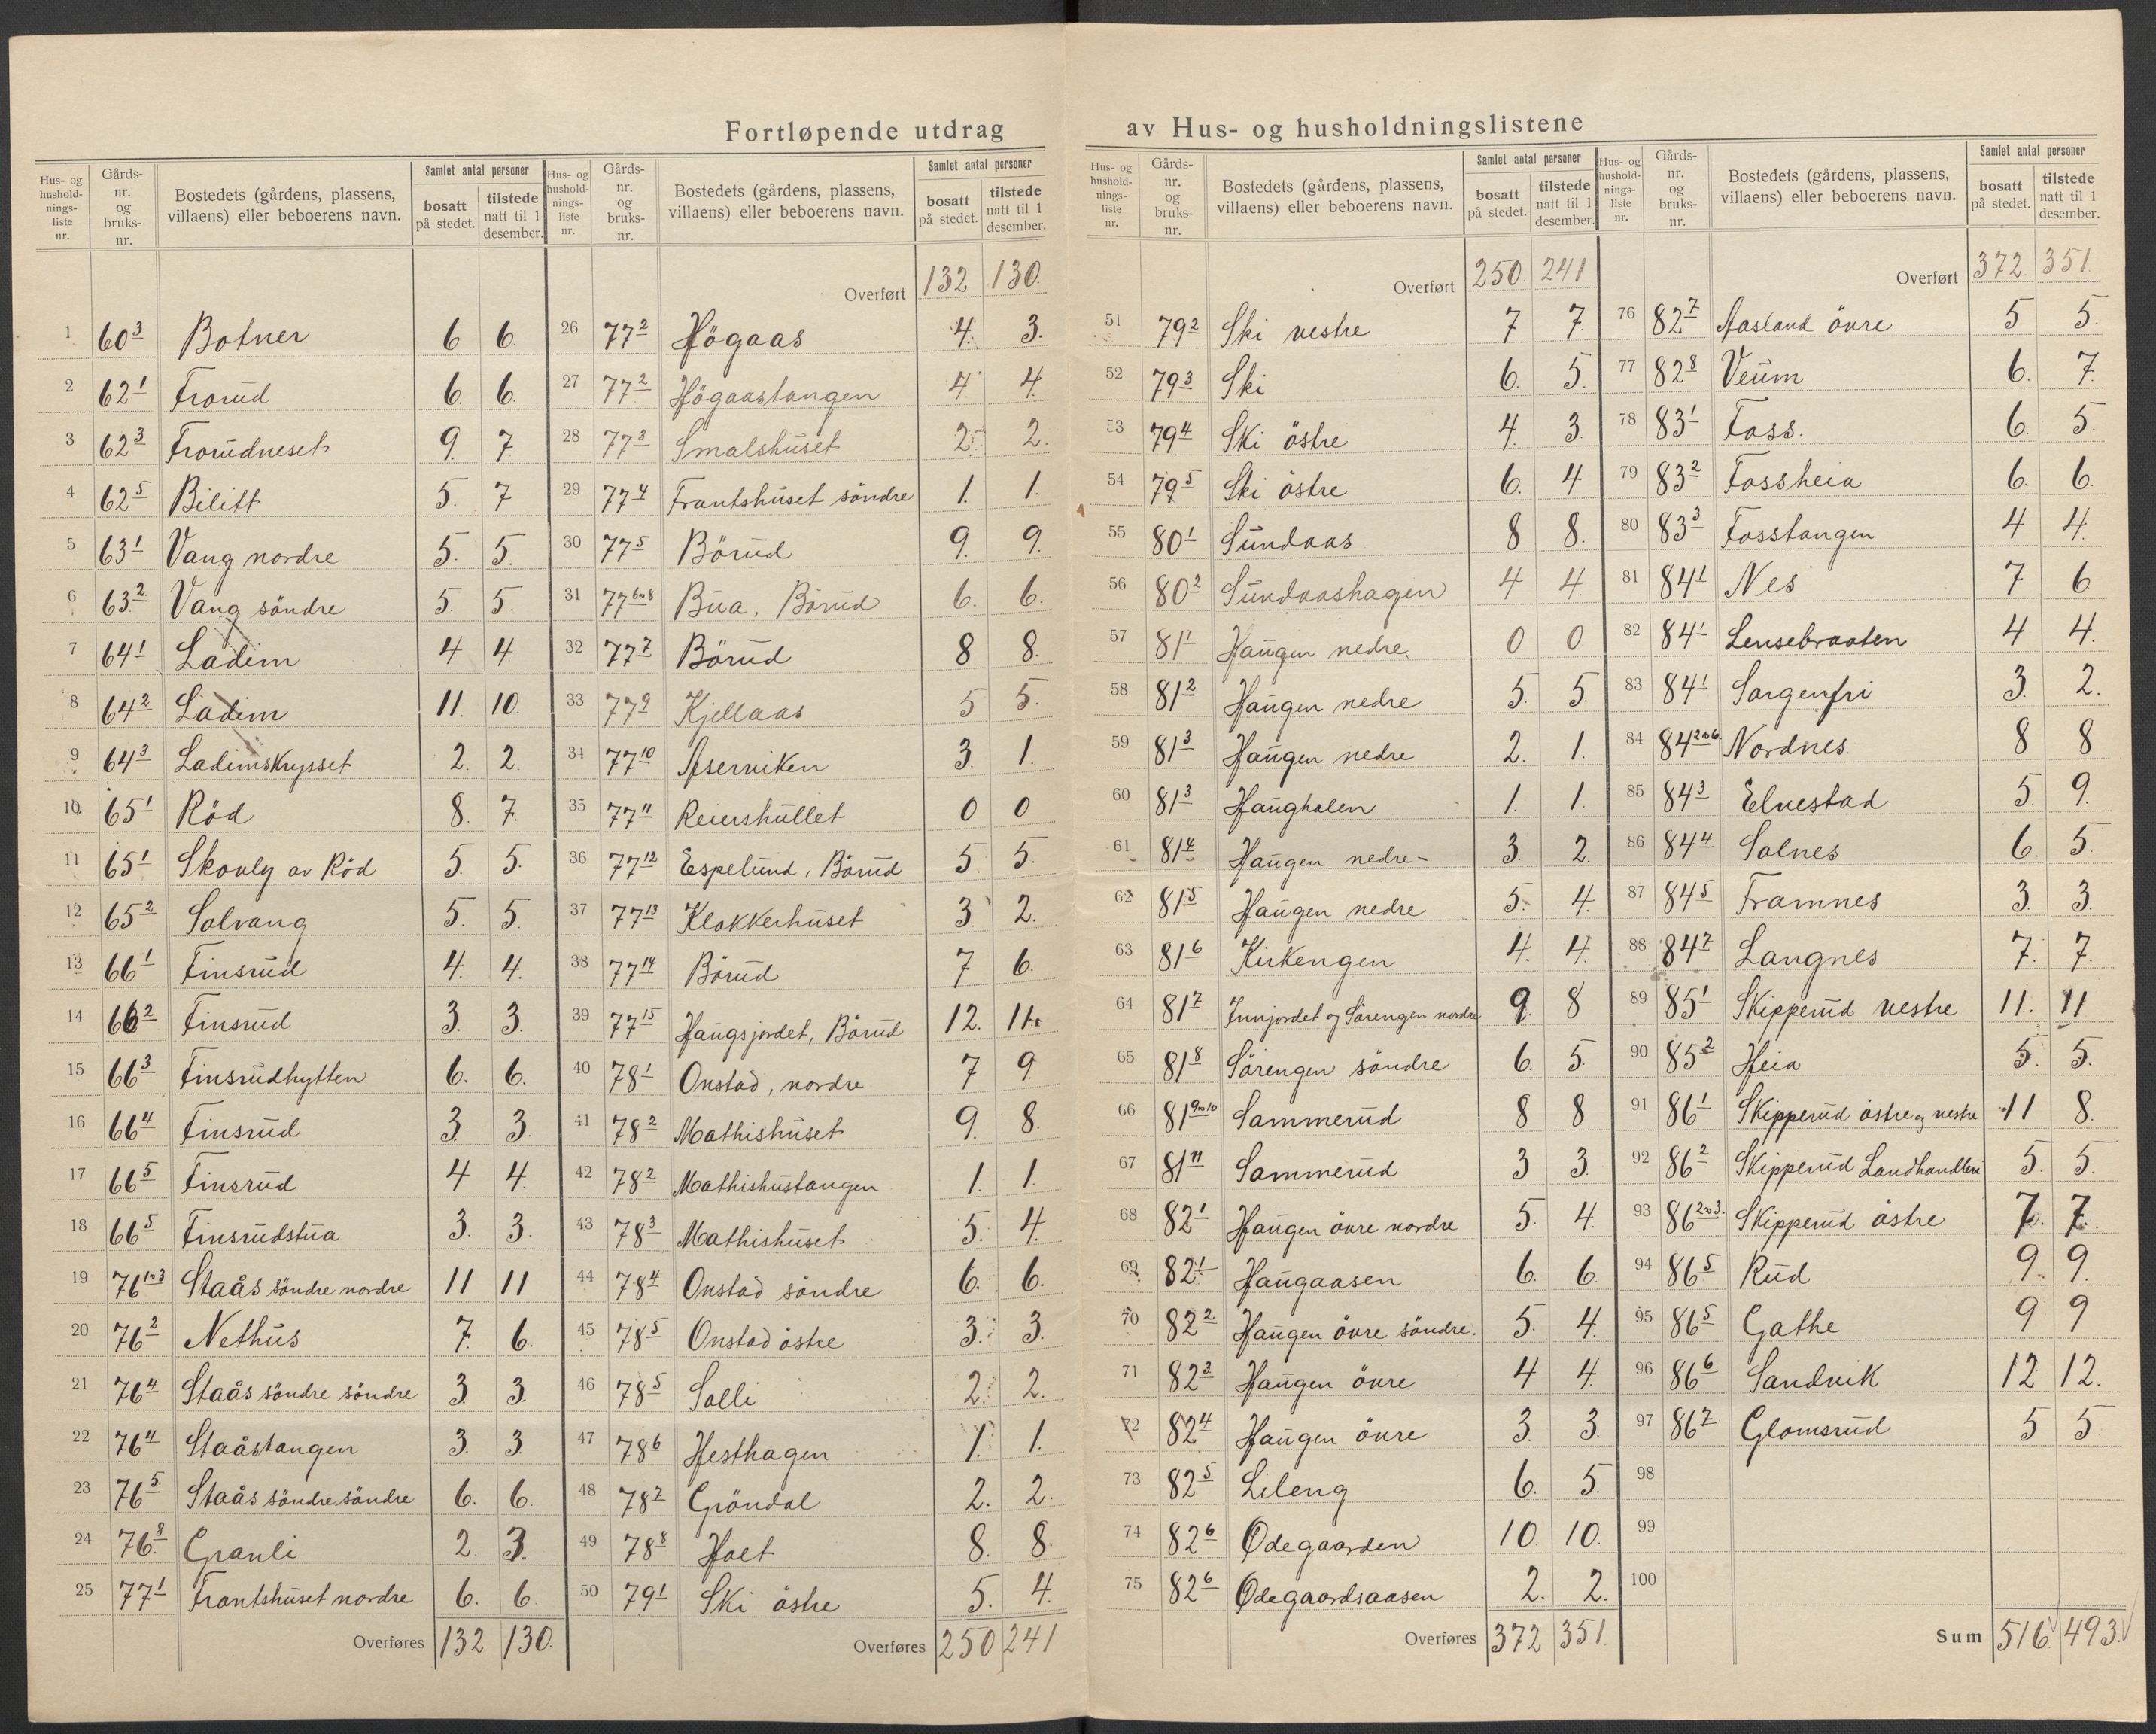 Fortløpende utdrag av Hus- og husholdningslistene
Hus- og husholdnings- liste nr. | Gårds- nr. og bruks- nr. | Bostedets (gårdens, plassens, villaens) eller beboerens navn. | Samlet antal personer bosatt på stedet. | tilstede natt til 1 desember.
1 60³ Botner 6 6.
2 62¹ Frorud 6. 6.
3 62³ Frorudneset 9. 7
4 62⁵ Bilitt 5. 7
5 63¹ Vang nordre 5. 5.
6 63² Vang söndre 5. 5.
7 64¹ Ladim 4 4
8 64² Ladim 11. 10.
9 64³ Ladimskrysset 2. 2.
10 65¹ Röd 8. 7.
11 65¹ Skovly av Röd 5. 5.
12 65² Solvang 5. 5.
13 66¹ Finsrud 4. 4.
14 66² Finsrud 3. 3.
15 66³ Finsrudhytten 6. 6.
16 66⁴ Finsrud 3. 3.
17 66⁵ Finsrud 4 4.
18 66⁵ Finsrudstua 3. 3.
19 76¹ⁿ³ Staås söndre nordre 11 11
20 76² Nethus 7. 6.
21 76⁴ Staås söndre söndre 3 3.
22 76⁴ Staåstangen 3. 3.
23 76⁵ Staås söndre söndre 6. 6.
24 76⁸ Granli 2. 3.
25 77¹ Frantshuset nordre 6. 6
Overføres 132 130.
Hus- og husholdnings- liste nr. | Gårds- nr. og bruks- nr. | Bostedets (gårdens, plassens, villaens) eller beboerens navn. | Samlet antal personer bosatt på stedet. | tilstede natt til 1 desember.
Overført 132 130.
26 77² Högaas 4. 3.
27 77² Högaastangen 4 4.
28 77³ Smalshuset 2. 2.
29 77⁴ Frantshuset söndre 1. 1.
30 77⁵ Börud 9. 9.
31 77⁶ᵒᵍ⁸ Bua, Börud 6. 6.
32 77⁷ Börud 8 8.
33 77⁹ Kjellaas 5 5.
34 77¹⁰ Aserviken 3. 1.
35 77¹¹ Reiershullet 0 0
36 77¹² Espelund, Börud 5 5.
37 77¹³ Klokkerhuset 3. 2.
38 77¹⁴ Börud 7 6.
39 77¹⁵ Haugsjordet, Börud 12. 11.
40 78¹ Onstad, nordre 7 9.
41 78² Mathishuset 9. 8.
42 78² Mathishustangen 1. 1.
43 78³ Mathishuset 5. 4.
44 78⁴ Onstad söndre 6. 6.
45 78⁵ Onstad östre 3. 3.
46 78⁵ Solli 2. 2.
47 78⁶ Hesthagen 1. 1.
48 78⁷ Gröndal 2. 2.
49 78⁸ Holt 8. 8.
50 79¹ Ski östre 5. 4.
Overføres 250 241
Hus- og husholdnings- liste nr. | Gårds- nr. og bruks- nr. | Bostedets (gårdens, plassens, villaens) eller beboerens navn. | Samlet antal personer bosatt på stedet. | tilstede natt til 1 desember.
Overført 250. 241
51 79² Ski vestre 7 7.
52 79³ Ski 6. 5.
53 79⁴ Ski östre 4. 3.
54 79⁵ Ski östre 6. 4
55 80¹ Sundaas 8 8.
56 80² Sundaashagen 4 4.
57 81¹ Haugen nedre 0 0
58 81² Haugen nedre 5. 5.
59 81³ Haugen nedre 2. 1.
60 81³ Haugholen 1. 1.
61 81⁴ Haugen nedre 3. 2.
62 81⁵ Haugen nedre 5. 4.
63 81⁶ Kirkengen 4. 4.
64 81⁷ Innjordet og Sörengen nordre 9. 8
65 81⁸ Sörengen söndre 6. 5.
66 81⁹ᵒᵍ¹⁰ Sammerud 8 8
67 81¹¹ Sammerud 3 3.
68 82¹ Haugen övre nordre 5. 4.
69 82¹ Haugaasen 6. 6.
70 82² Haugen övre söndre. 5. 4.
71 82³ Haugen övre 4 4.
72 82⁴ Haugen övre 3. 3.
73 82⁵ Lileng 6. 5.
74 82⁶ Ødegaarden 10. 10.
75 82⁶ Ødegaardsaasen 2. 2.
Overføres 372 351.
Hus- og husholdnings- liste nr. | Gårds- nr. og bruks- nr. | Bostedets (gårdens, plassens, villaens) eller beboerens navn. | Samlet antal personer bosatt på stedet. | tilstede natt til 1 desember.
Overført 372. 351.
76 82⁷ Aasland övre 5 5.
77 82⁸ Veum 6. 7.
78 83¹ Foss. 6. 5.
79 83² Fossheia 6. 6.
80 83³ Fosstangen 4 4.
81 84¹ Nes 7 6
82 84¹ Lensebraaten 4 4.
83 84¹ Sorgenfri 3. 2.
84 84²ᵒᵍ⁶ Nordnes 8 8
85 84³ Elvestad 5. 9.
86 84⁴ Solnes 6. 5.
87 84⁵ Framnes 3. 3.
88 84⁷ Langnes 7. 7.
89 85¹ Skipperud vestre 11. 11
90 85² Heia 5. 5.
91 86¹ Skipperud östre og vestre 11 8.
92 86² Skipperud Landhandleri 5. 5.
93 86²ᵒᵍ³ Skipperud östre 7. 7.
94 86⁵ Rud 9. 9.
95 86⁵ Gathe 9 9
96 86⁶ Sandvik 12 12.
97 86⁷ Glomsrud 5 5
98
99
100
Sum 516 493.